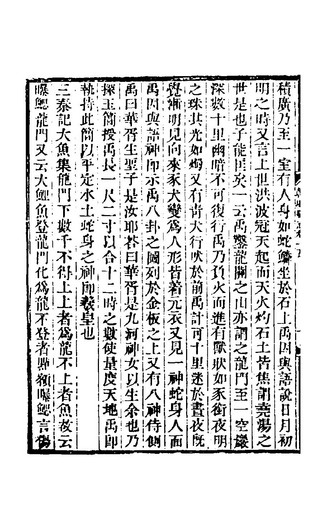 積廣乃至一室有人身如蛇鱗坐於石上禹因與語說日月初
明之時又言上世洪波冠天起而天火灼石土皆焦謂堯湯之
世是也子能臣矣一云禹鑿龍關之山亦謂之龍門至一空巖
深數十里幽暗不可復行禹乃負火而進有獸狀如豕銜夜明
之珠其光如燭又有青犬行吠於前禹計可十里迷於晝夜旣
覺漸明見向來豕犬變爲人形皆著元衣又見一神蛇身人面
禹因與語神卽示禹八卦之圖列於金板之上又有八神侍側
禹曰華胥生聖子是汝耶荅曰華胥是九河神女以生余也乃
探玉簡授禹長一尺二寸以合十二時之數使量度天地禹卽
執持此簡以平定水土蛇身之神卽羲皇也
三秦記大魚集龍門下數千不得上上者爲龍不上者魚故云
曝鰓龍門又云大鯉魚登龍門化爲龍不登者點額曝鰓言傷